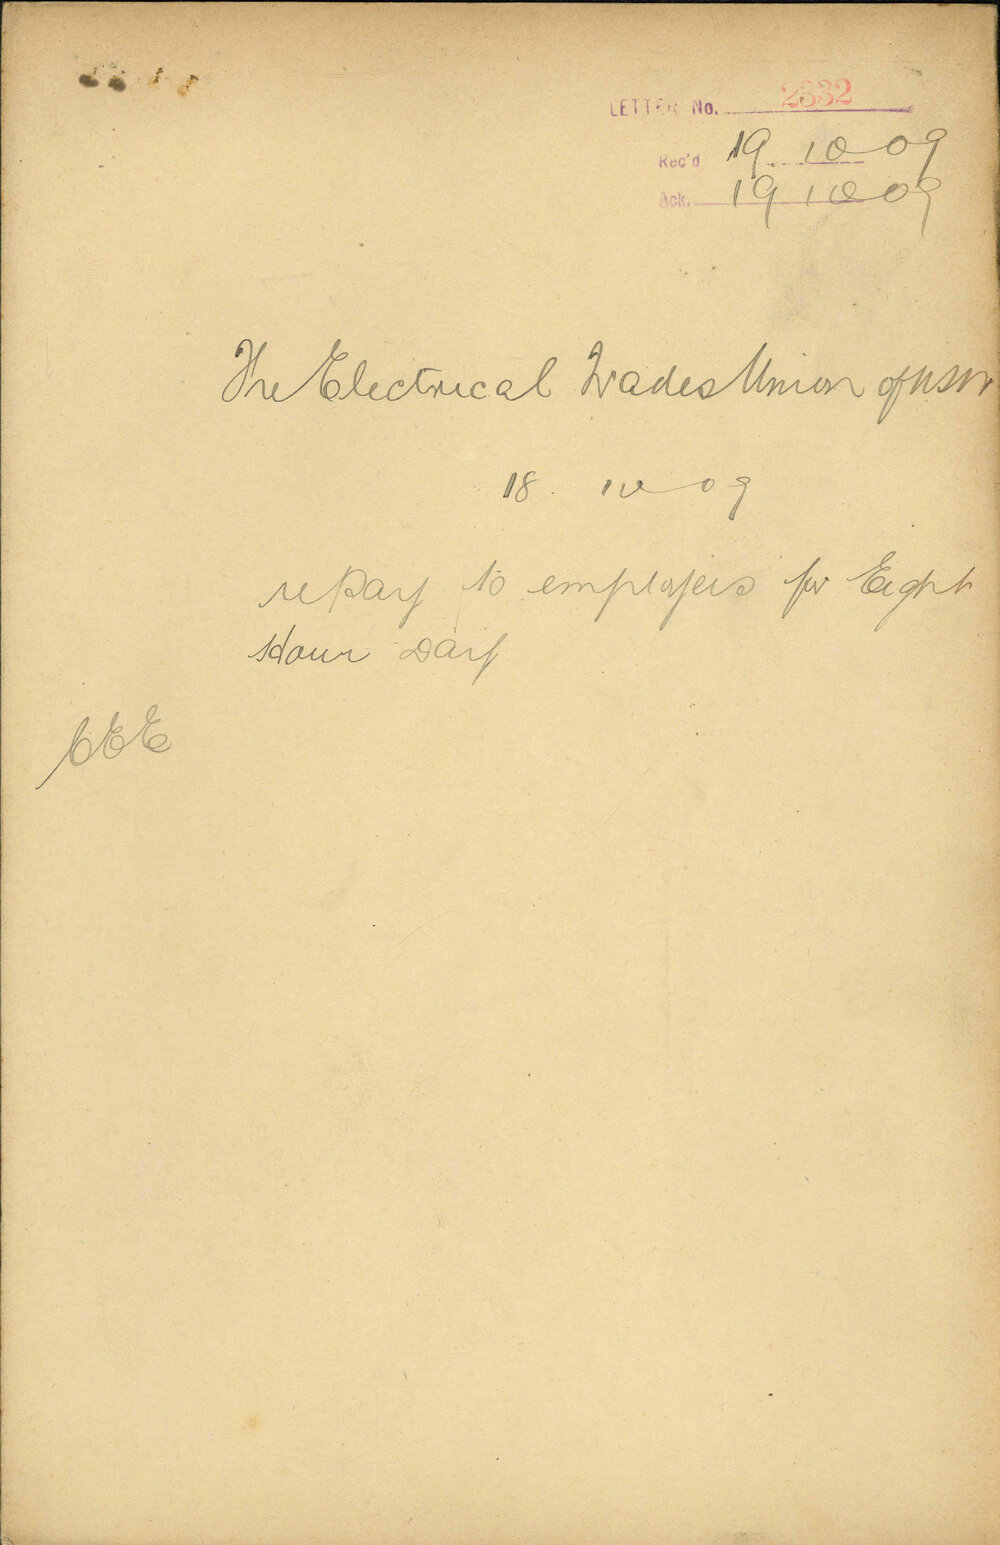 LETTER No. 2332
Rec'd 19 10 09
Ack. 19 10 09
The Electrical Trades Union of NSW
18. 10 09
re Pay to employees for Eight
Hour Day
CEE